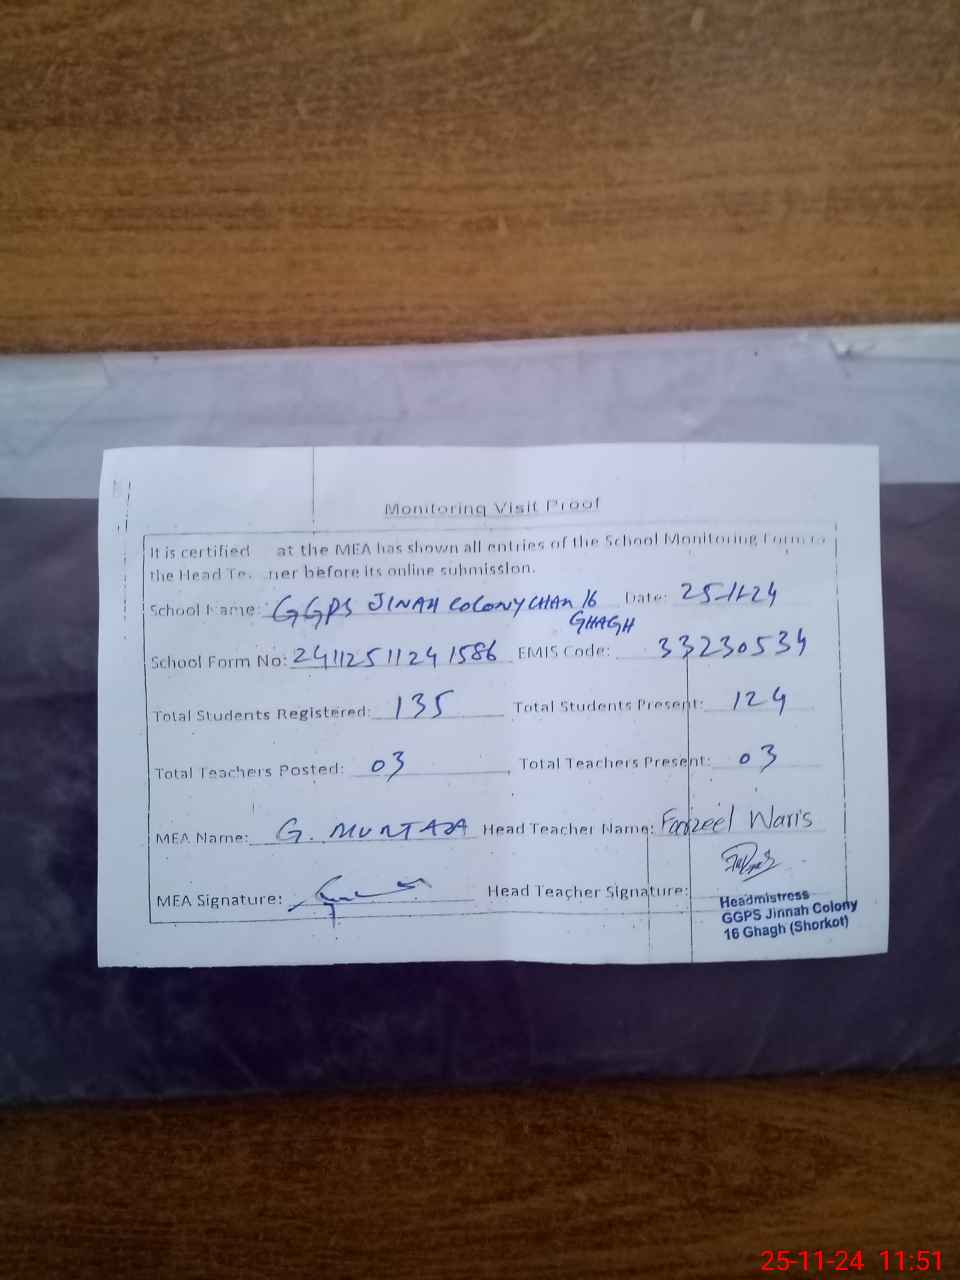 Monitoring Visit Proof
It is certified at the MEA has shown all entries of the School Monitoring Form to
the Head Te. .ner before its online submission.
School Name: GGPS JINAH COLONY CHAK 16 Date: 25-11-24
GHAGH
School Form No: 2411251124 1586 EMIS Code: 33230534
Total Students Registered: 135 Total Students Present: 124
Total Teachers Posted: 03 Total Teachers Present: 03
MEA Name: G. MURTAZA Head Teacher Name: Waris
MEA Signature: Head Teacher Signature:
Headmistress
GGPS Jinnah Colony
16 Ghagh (Shorkot)
25-11-24 11:51